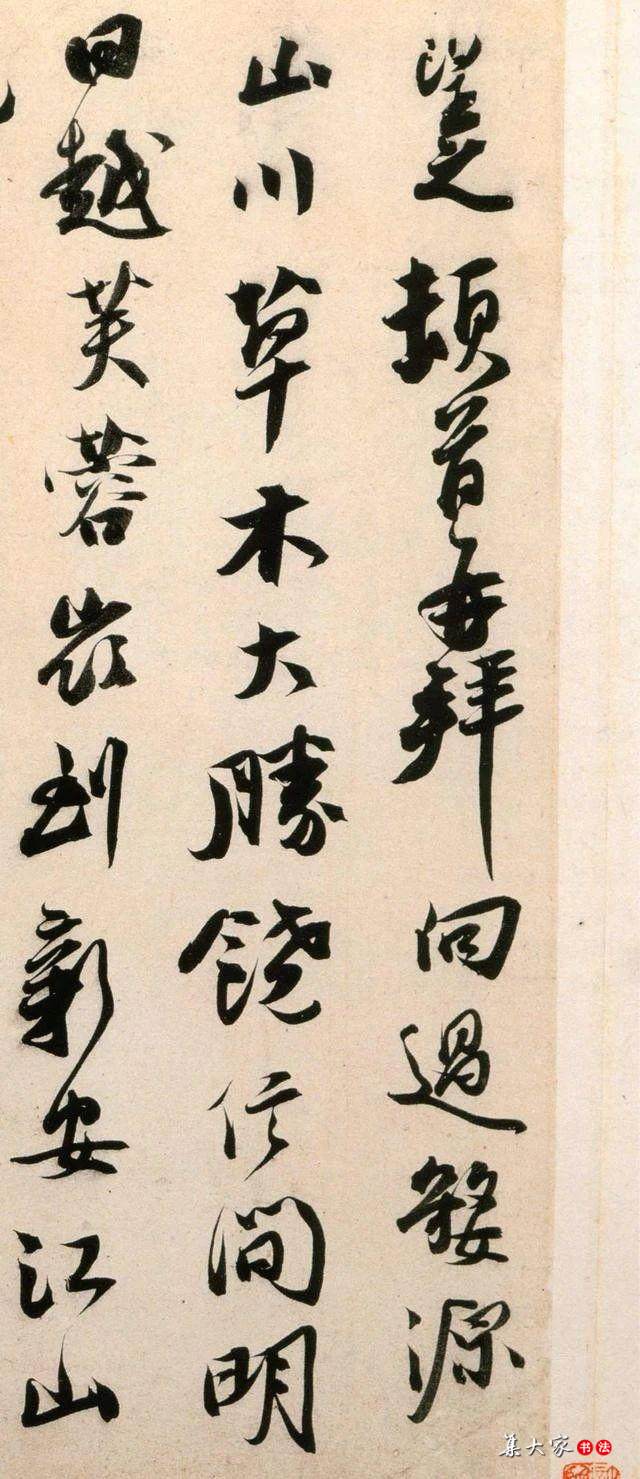 望之頓首再拜向過婺源
山川草木大勝饒信間明
日越芙蓉嶺到新安江山
集大家书法